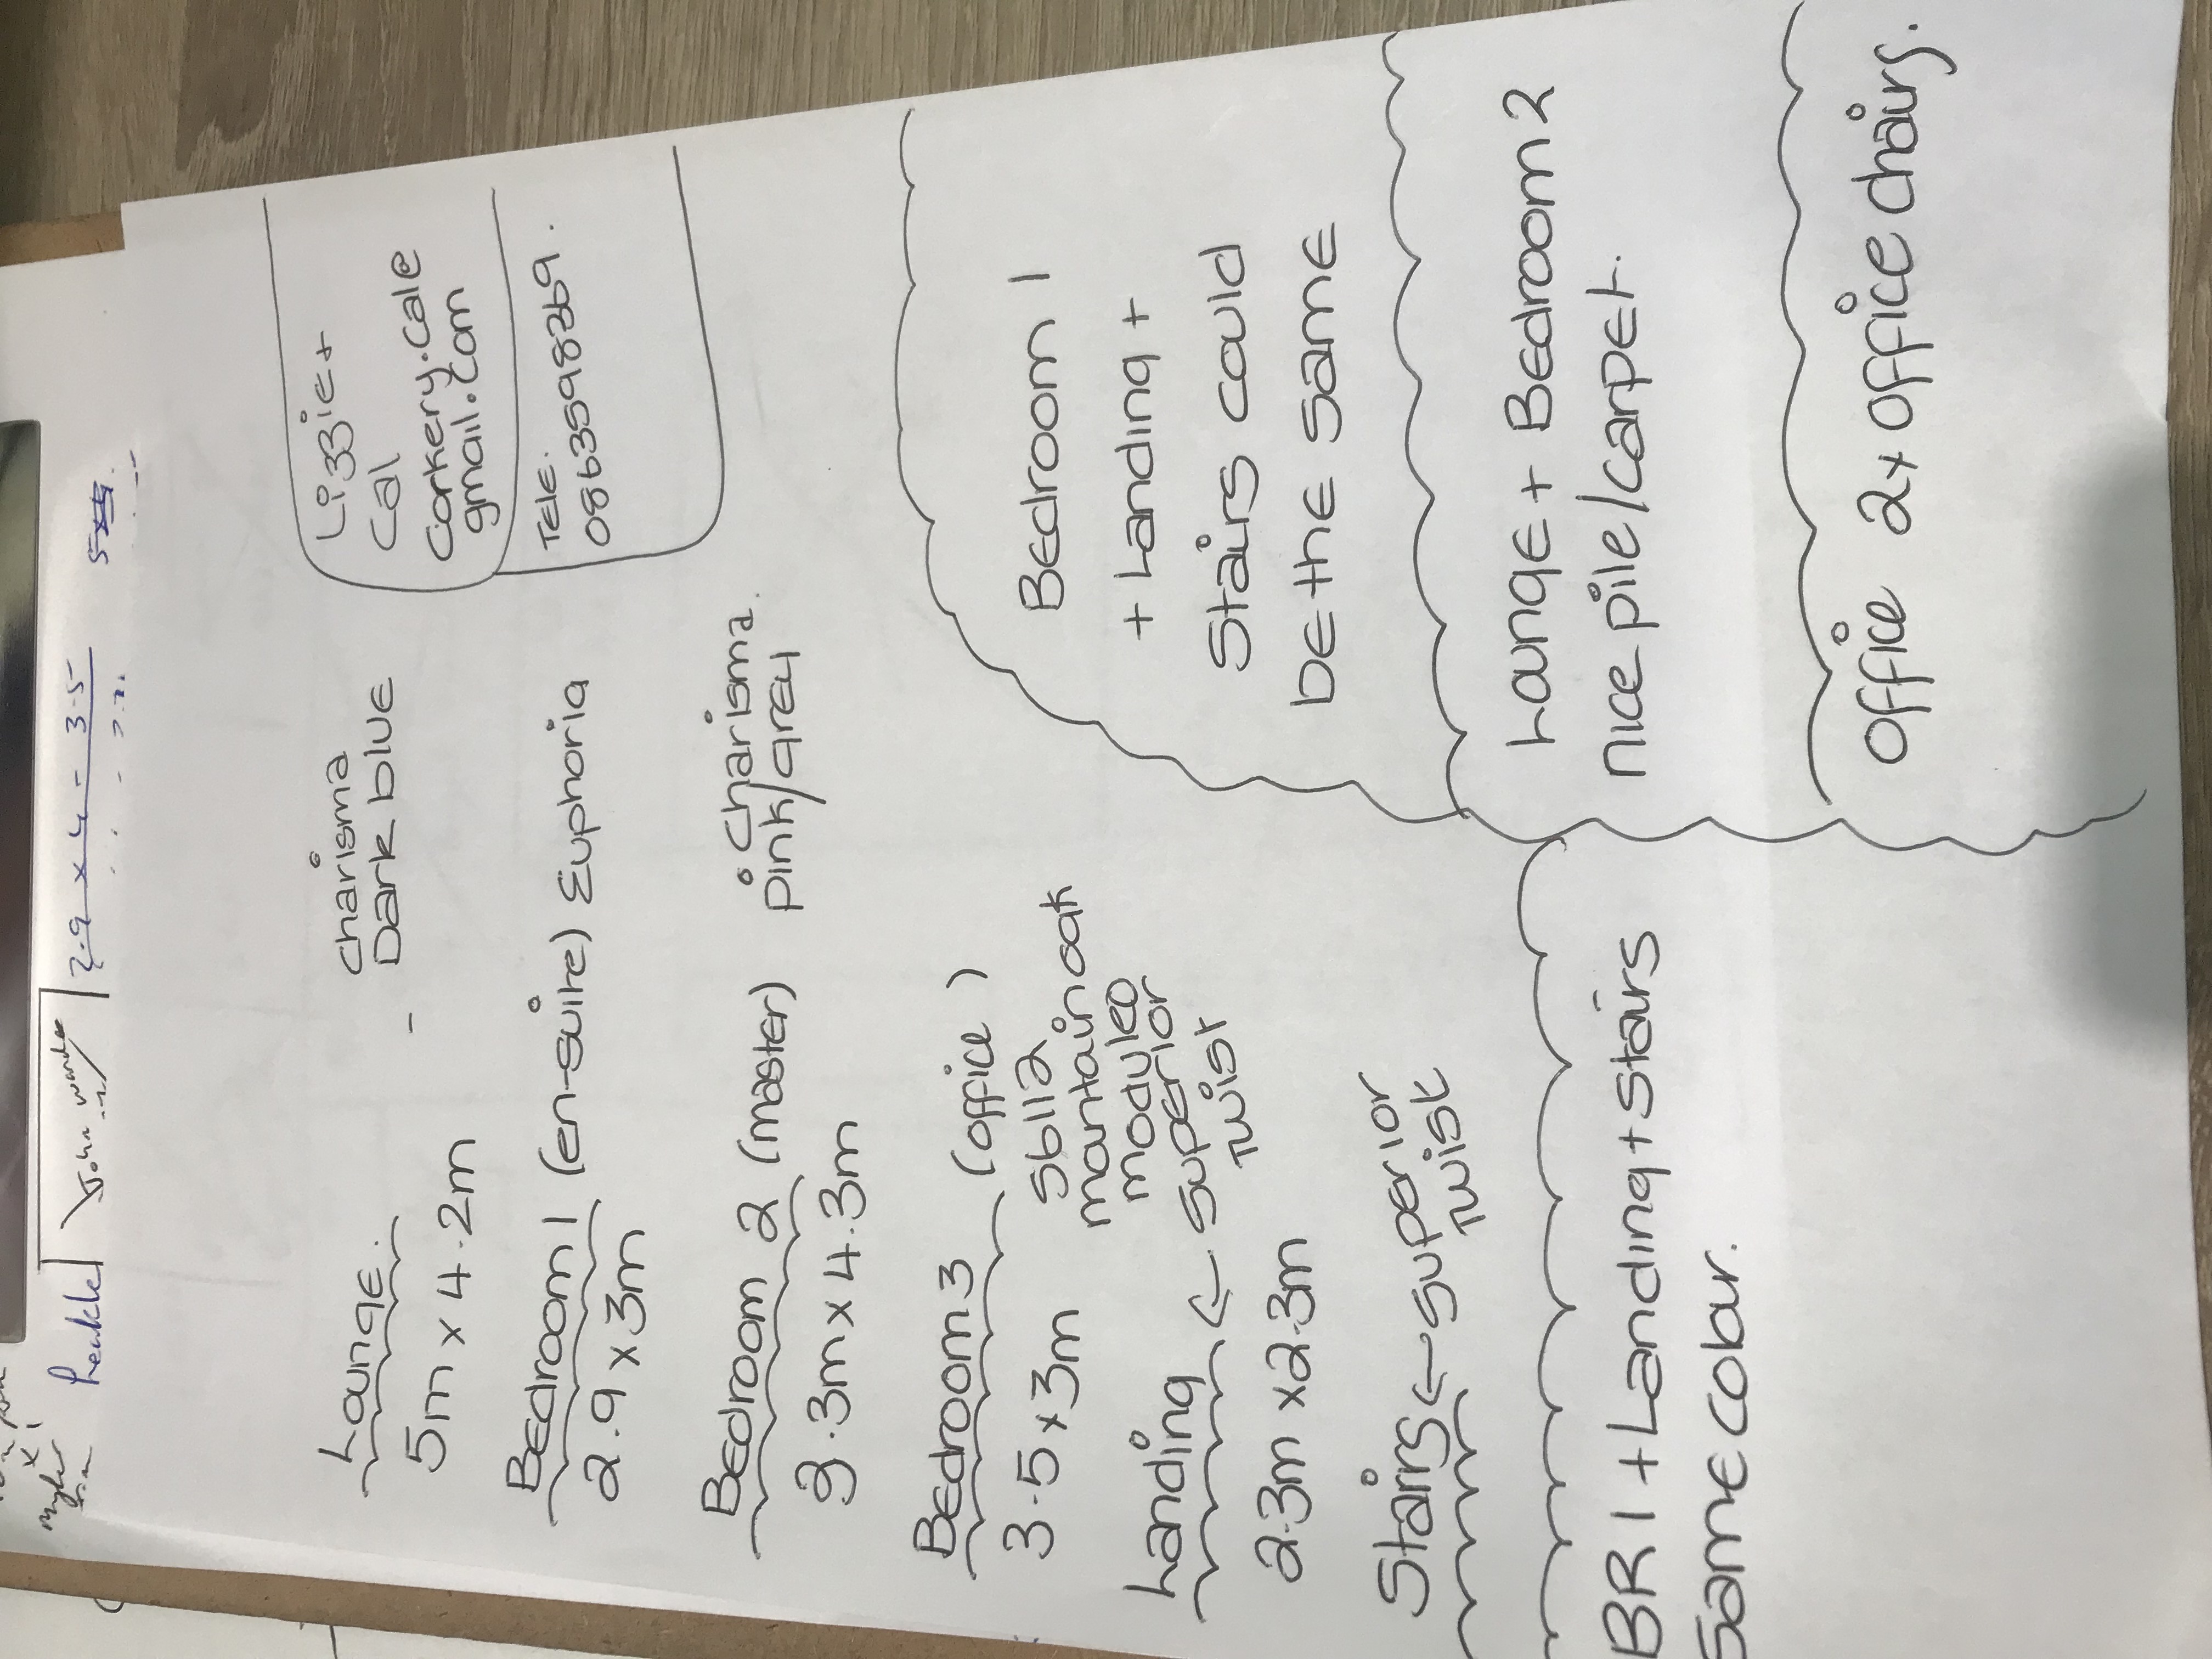 2.9 x 4 - 3.5
Lounge.
5m x 4.2m
- Charisma
Dark blue
Lizzie +
Cal
corkery.cale
gmail.com
TELE.
0863598369.
Bedroom 1 (en-suite) Euphoria
2.9 x 3m
Bedroom 2 (master)
3.3m x 4.3m
Charisma
pink/grey
Bedroom 3 (office)
3.5 x 3m
56112
mountain oak
moduleo
Landing ← superior
Twist
2.3m x 2.3m
Stairs ← superior
Twist
Bedroom 1
+ Landing +
Stairs could
be the same
Lounge + Bedroom 2
nice pile/carpet.
Office 2x office chairs.
BR 1 + Landing + stairs
same colour.